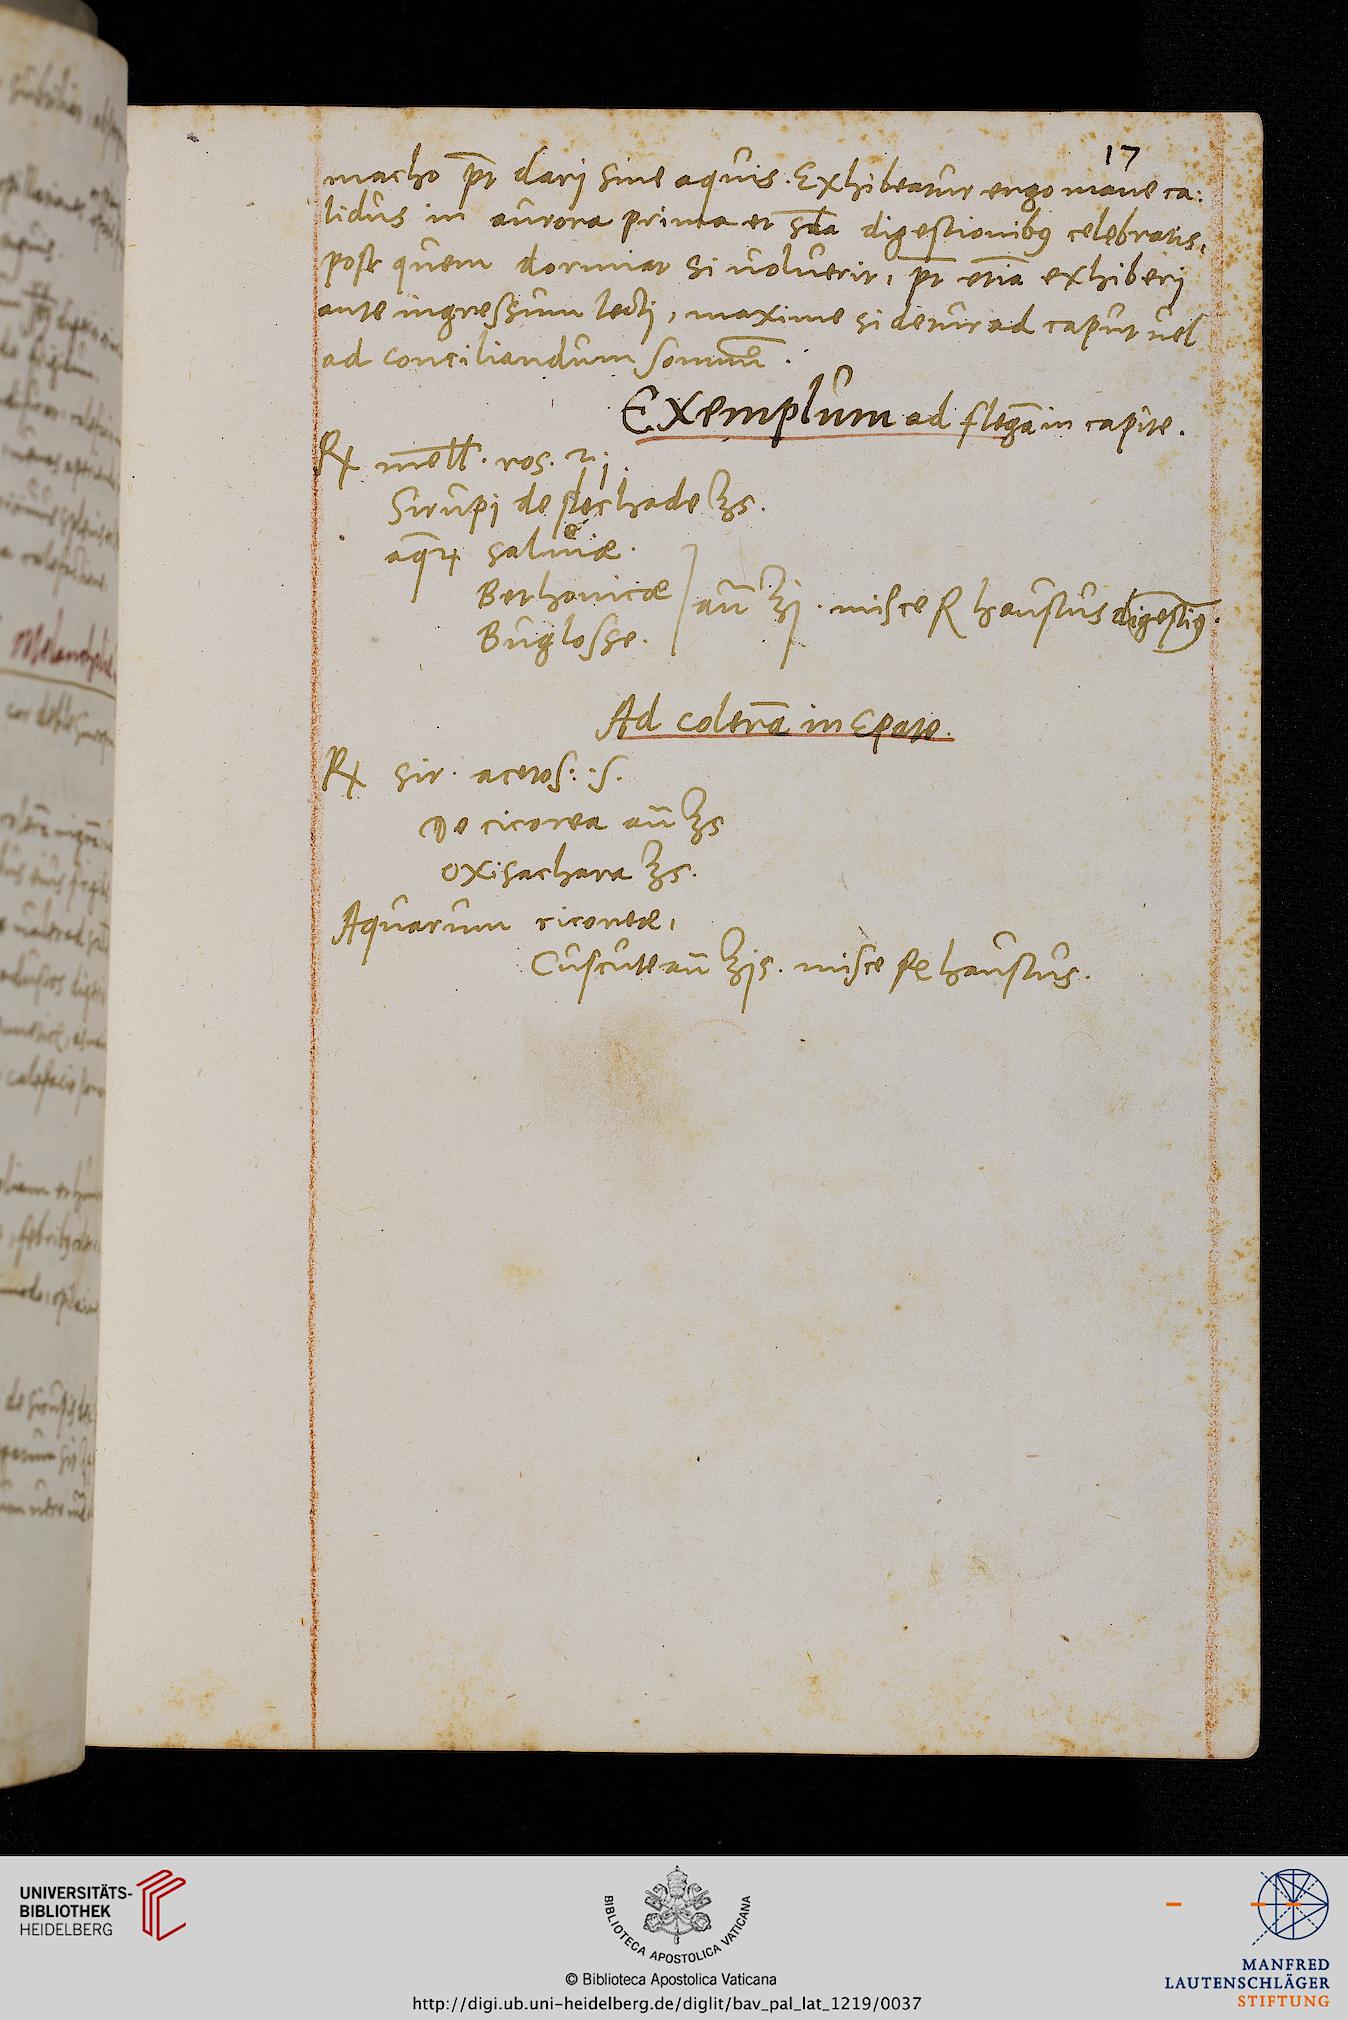 17
macho pt darj sine aquis. Exhibeatur ergo mane ca:
lidus in aurora prima et sda digestionibus celebratis,
post quem dormiat si uoluerit, pt etiā exhiberj
ante ingressum lectj, maxime si detur ad caput uel
ad conciliandum somnū.
Exemplum ad flegā in capite.
℞ mell. ros.
Sirupj de stechade ʒs.
aqꝝ saluiæ.
Bethonicæ
Buglosse.
an̄ ʒj. misce haustus digestiꝰ.
Ad colerā in Epate.
℞ sir. acetos:
De cicorea an̄ ʒs
oxisachara ʒs.
Aquarum cicoreæ,
Cuscute an̄ ʒjs. misce haustus.
UNIVERSITÄTS-
BIBLIOTHEK
HEIDELBERG
BIBLIOTECA APOSTOLICA VATICANA
© Biblioteca Apostolica Vaticana
http://digi.ub.uni-heidelberg.de/diglit/bav_pal_lat_1219/0037
MANFRED
LAUTENSCHLÄGER
STIFTUNG